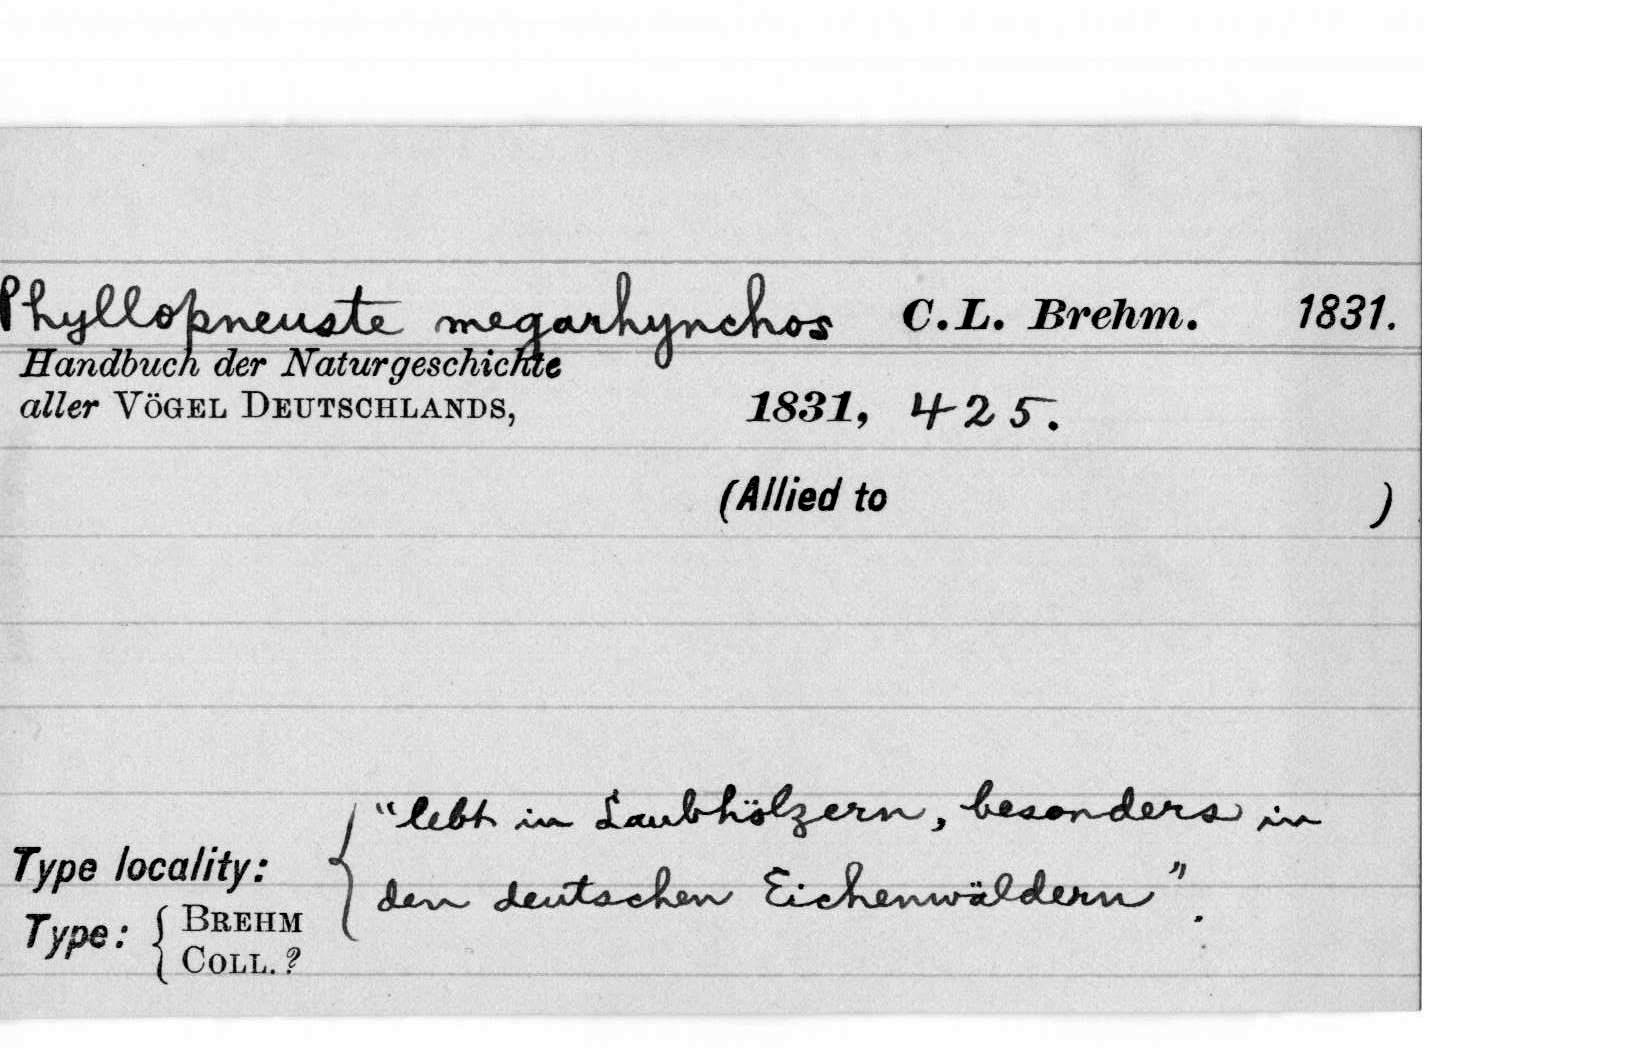 Phyllopneuste megarhynchos C.L. Brehm. 1831.
Handbuch der Naturgeschichte
aller VÖGEL DEUTSCHLANDS, 1831, 425.
(Allied to )
"lebt in Laubhölzern, besonders in
Type locality:
den deutschen Eichenwäldern".
Type: { BREHM
COLL. ?